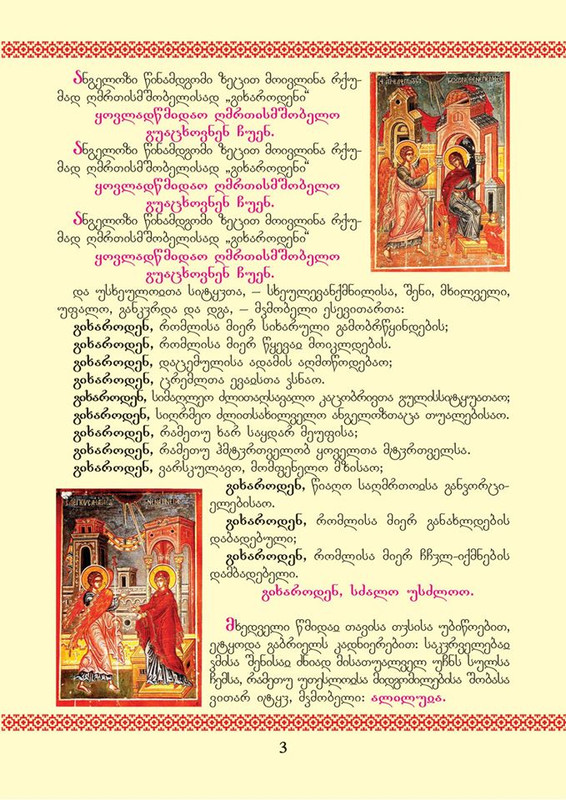 ანგელოზი წინამდგომი ზეცით მოივლინა რქუ-
მად ღმრთისმშობელისად „გიხაროდენი“
ყოვლადწმიდაო ღმრთისმშობელო
გუაცხოვნენ ჩუენ.
ანგელოზი წინამდგომი ზეცით მოივლინა რქუ-
მად ღმრთისმშობელისად „გიხაროდენი“
ყოვლადწმიდაო ღმრთისმშობელო
გუაცხოვნენ ჩუენ.
ანგელოზი წინამდგომი ზეცით მოივლინა რქუ-
მად ღმრთისმშობელისად „გიხაროდენი“
ყოვლადწმიდაო ღმრთისმშობელო
გუაცხოვნენ ჩუენ.
და უსხეულოჲთა სიტყჳთა, – სხეულევანქმნილისა, შენი, მხილველი,
უფალო, განკჳრდა და დგა, – მჴმობელი ესევითართა:
გიხაროდენ, რომლისა მიერ სიხარული გამობრწყინდების;
გიხაროდენ, რომლისა მიერ წყევაჲ მოიკლდების.
გიხაროდენ, დაცემულისა ადამის აღმოწოდებაო;
გიხაროდენ, ცრემლთა ევაჲსთა ჴსნაო.
გიხაროდენ, სიმაღლეო ძლითაღსავალო კაცობრივთა გულისსიტყუათაო;
გიხაროდენ, სიღრმეო ძლითსახილველო ანგელოზთაცა თუალებისაო.
გიხაროდენ, რამეთუ ხარ საყდარ მეუფისა;
გიხაროდენ, რამეთუ ჰმტჳრთველობ ყოველთა მტჳრთველსა.
გიხაროდენ, ვარსკულავო, მომფენელო მზისაო;
გიხაროდენ, წიაღო საღმრთოჲსა განჴორცი-
ელებისაო.
გიხაროდენ, რომლისა მიერ განახლდების
დაბადებული;
გიხაროდენ, რომლისა მიერ ჩჩჳლ-იქმნების
დამბადებელი.
გიხაროდენ, სძალო უსძლოო.
მხედველი წმიდაჲ თავისა თჳსისა უბიწოებით,
ეტყოდა გაბრიელს კადნიერებით: საკჳრველებაჲ
ჴმისა შენისაჲ ძნიად მისათუალველ უჩნს სულსა
ჩემსა, რამეთუ უთესლოჲსა მიდგომილებისა შობასა
ვითარ იტყჳ, მჴმობელი: ალილუჲა.
3